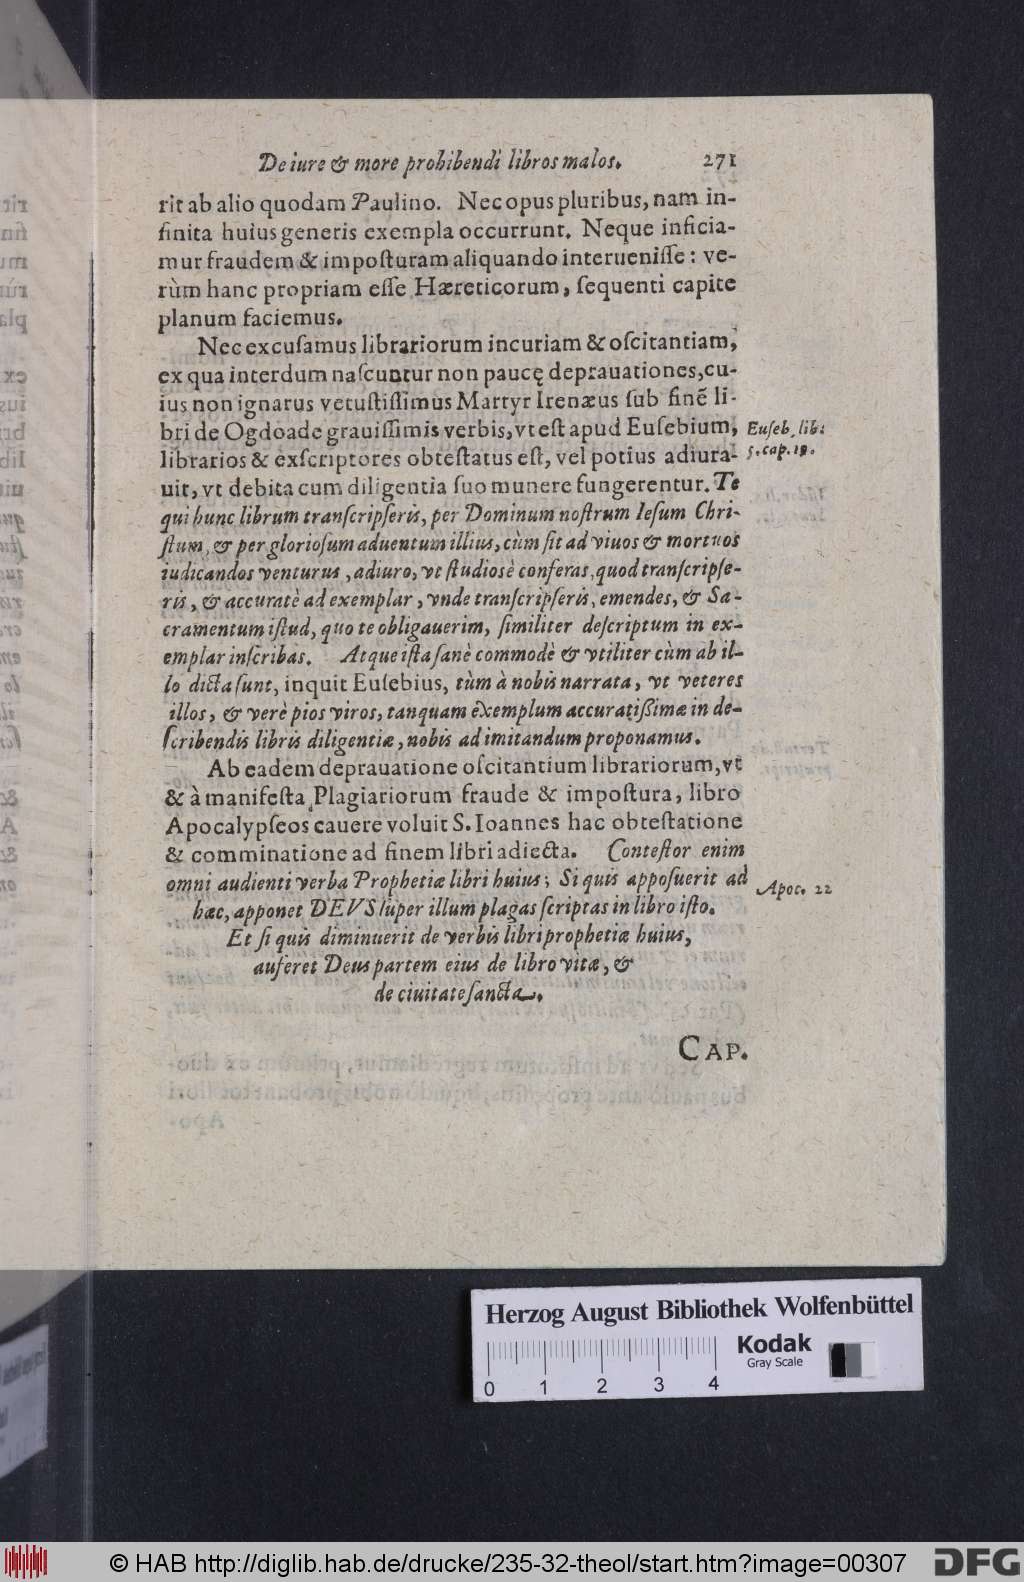 De iure & more prohibendi libros malos. 271
rit ab alio quodam Paulino. Nec opus pluribus, nam in-
finita huius generis exempla occurrunt. Neque inficia-
mur fraudem & imposturam aliquando interuenisse: ve-
rùm hanc propriam esse Hæreticorum, sequenti capite
planum faciemus.
Nec excusamus librariorum incuriam & oscitantiam,
ex qua interdum nascuntur non paucę deprauationes, cu-
ius non ignarus vetustissimus Martyr Irenæus sub finẽ li-
bri de Ogdoade grauissimis verbis, vt est apud Eusebium,
Euseb. lib.
5. cap. 19.
librarios & exscriptores obtestatus est, vel potius adiura-
uit, vt debita cum diligentia suo munere fungerentur. Te
qui hunc librum transcripseris, per Dominum nostrum Iesum Chri-
stum, & per gloriosum aduentum illius, cùm sit ad viuos & mortuos
iudicandos venturus, adiuro, vt studiosè conferas, quod transcripse-
ris, & accuratè ad exemplar, vnde transcripseris, emendes, & Sa-
cramentum istud, quo te obligauerim, similiter descriptum in ex-
emplar inscribas. Atque ista sanè commodè & vtiliter cùm ab il-
lo dicta sunt, inquit Eusebius, tùm à nobis narrata, vt veteres
illos, & verè pios viros, tanquam exemplum accuratißimæ in de-
scribendis libris diligentiæ, nobis ad imitandum proponamus.
Ab eadem deprauatione oscitantium librariorum, vt
& à manifesta Plagiariorum fraude & impostura, libro
Apocalypseos cauere voluit S. Ioannes hac obtestatione
& comminatione ad finem libri adiecta. Contestor enim
omni audienti verba Prophetiæ libri huius; Si quis apposuerit ad
Apoc. 22
hæc, apponet DEVS super illum plagas scriptas in libro isto.
Et si quis diminuerit de verbis libri prophetiæ huius,
auferet Deus partem eius de libro vitæ, &
de ciuitate sancta.
CAP.
Herzog August Bibliothek Wolfenbüttel
Kodak
Gray Scale
0 1 2 3 4
© HAB http://diglib.hab.de/drucke/235-32-theol/start.htm?image=00307
DFG